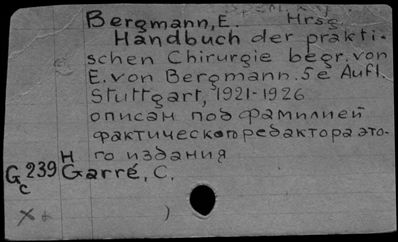 Bergmann, E. Hrsg.
Handbuch der prakti-
schen Chirurgie begr. von
E. von Bergmann. 5e Aufl.
Stuttgart, 1921-1926
описан под фамилией
фактического редактора это-
го издания
G 239 H Garré, C.
c